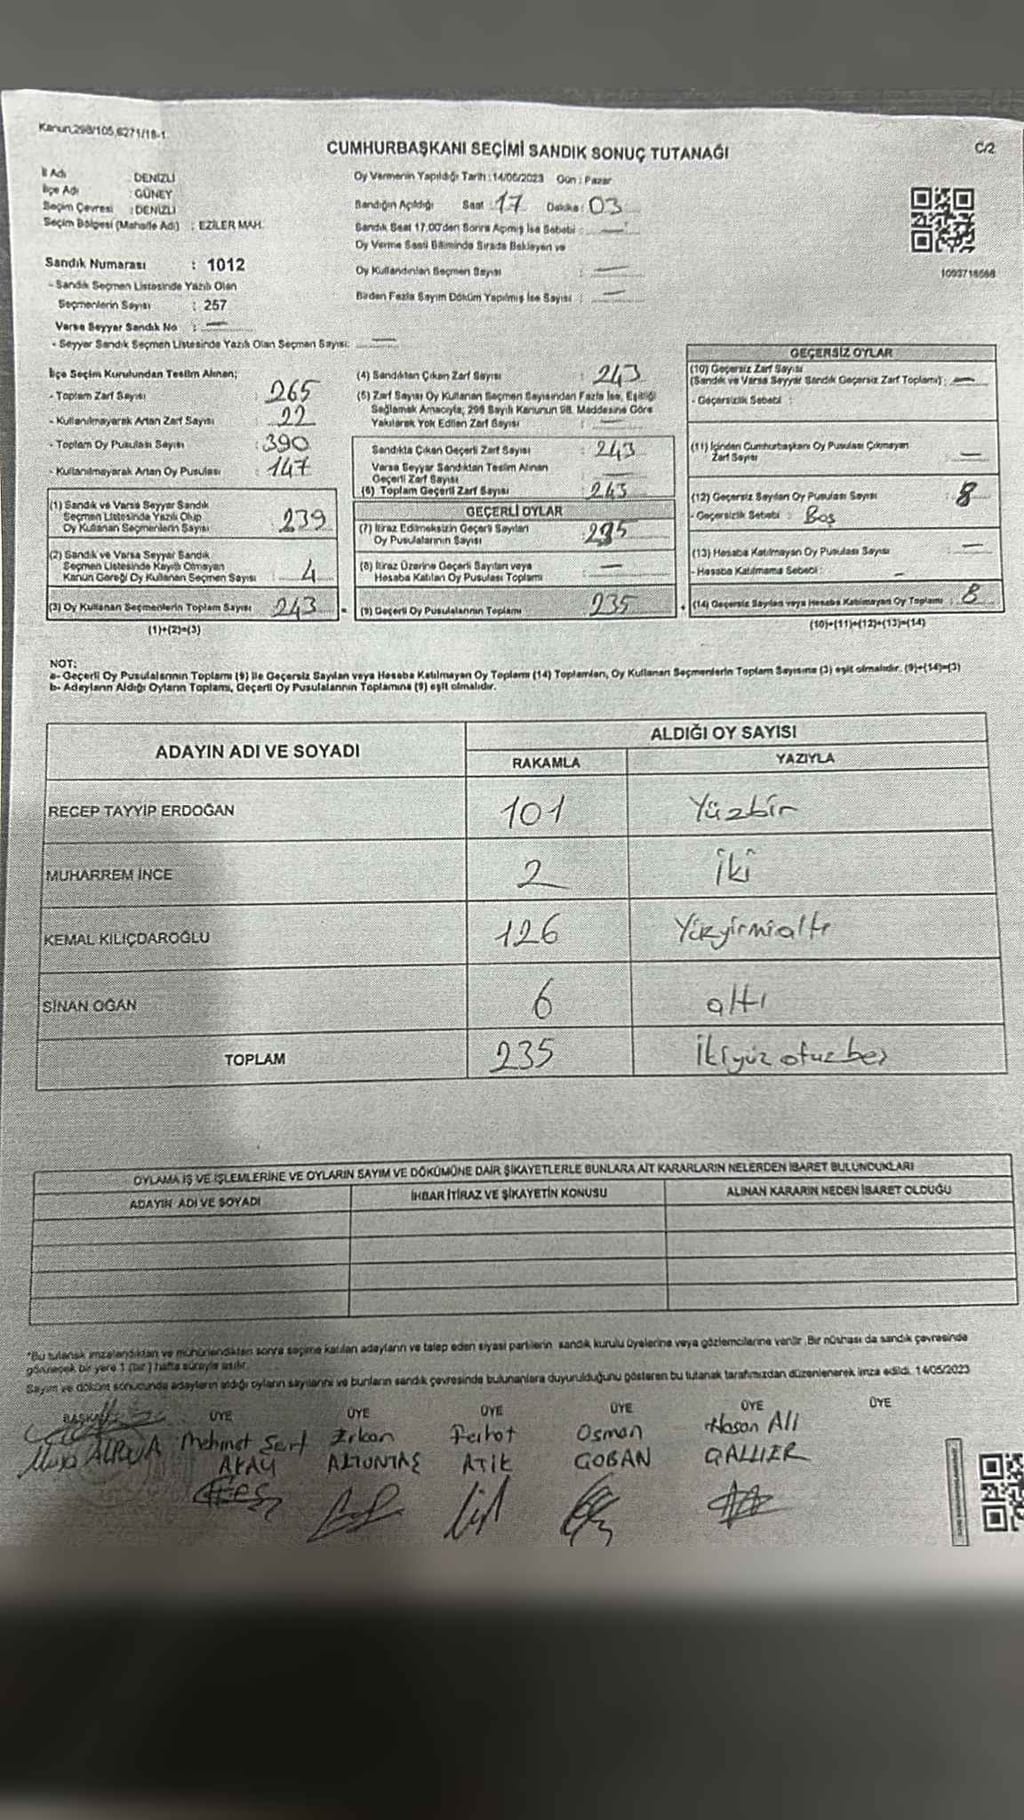 Kanun,298/105,6271/18-1
CUMHURBAŞKANI SEÇİMİ SANDIK SONUÇ TUTANAĞI
C/2
İl Adı : DENİZLİ
İlçe Adı : GÜNEY
Seçim Çevresi : DENİZLİ
Seçim Bölgesi (Mahalle Adı) : EZİLER MAH.
Oy Vermenin Yapıldığı Tarih : 14/05/2023 Gün : Pazar
Sandığın Açıldığı Saat : 17 Dakika : 03
Sandık Saat 17.00'den Sonra Açılmış İse Sebebi : —
Oy Verme Saati Bitiminde Sırada Bekleyen ve
Oy Kullandırılan Seçmen Sayısı : —
Birden Fazla Sayım Döküm Yapılmış İse Sayısı : —
1093718568
Sandık Numarası : 1012
- Sandık Seçmen Listesinde Yazılı Olan
Seçmenlerin Sayısı : 257
Varsa Seyyar Sandık No : —
- Seyyar Sandık Seçmen Listesinde Yazılı Olan Seçmen Sayısı: —
İlçe Seçim Kurulundan Teslim Alınan;
- Toplam Zarf Sayısı : 265
- Kullanılmayarak Artan Zarf Sayısı : 22
- Toplam Oy Pusulası Sayısı : 390
- Kullanılmayarak Artan Oy Pusulası : 147
(1) Sandık ve Varsa Seyyar Sandık
Seçmen Listesinde Yazılı Olup
Oy Kullanan Seçmenlerin Sayısı : 239
(2) Sandık ve Varsa Seyyar Sandık
Seçmen Listesinde Kayıtlı Olmayan
Kanun Gereği Oy Kullanan Seçmen Sayısı : 4
(3) Oy Kullanan Seçmenlerin Toplam Sayısı : 243
(1)+(2)=(3)
(4) Sandıktan Çıkan Zarf Sayısı : 243
(5) Zarf Sayısı Oy Kullanan Seçmen Sayısından Fazla İse, Eşitliği
Sağlamak Amacıyla; 298 Sayılı Kanunun 98. Maddesine Göre
Yakılarak Yok Edilen Zarf Sayısı : —
Sandıkta Çıkan Geçerli Zarf Sayısı : 243
Varsa Seyyar Sandıktan Teslim Alınan
Geçerli Zarf Sayısı : —
(6) Toplam Geçerli Zarf Sayısı : 243
GEÇERLİ OYLAR
(7) İtiraz Edilmeksizin Geçerli Sayılan
Oy Pusulalarının Sayısı : 235
(8) İtiraz Üzerine Geçerli Sayılan veya
Hesaba Katılan Oy Pusulası Toplamı : —
(9) Geçerli Oy Pusulalarının Toplamı : 235
GEÇERSİZ OYLAR
(10) Geçersiz Zarf Sayısı
(Sandık ve Varsa Seyyar Sandık Geçersiz Zarf Toplamı) : —
- Geçersizlik Sebebi :
(11) İçinden Cumhurbaşkanı Oy Pusulası Çıkmayan
Zarf Sayısı : —
(12) Geçersiz Sayılan Oy Pusulası Sayısı : 8
- Geçersizlik Sebebi : Boş
(13) Hesaba Katılmayan Oy Pusulası Sayısı : —
- Hesaba Katılmama Sebebi : —
(14) Geçersiz Sayılan veya Hesaba Katılmayan Oy Toplamı : 8
(10)+(11)+(12)+(13)=(14)
NOT:
a- Geçerli Oy Pusulalarının Toplamı (9) ile Geçersiz Sayılan veya Hesaba Katılmayan Oy Toplamı (14) Toplamları, Oy Kullanan Seçmenlerin Toplam Sayısına (3) eşit olmalıdır. (9)+(14)=(3)
b- Adayların Aldığı Oyların Toplamı, Geçerli Oy Pusulalarının Toplamına (9) eşit olmalıdır.
ADAYIN ADI VE SOYADI
ALDIĞI OY SAYISI
RAKAMLA YAZIYLA
RECEP TAYYİP ERDOĞAN 101 Yüzbir
MUHARREM İNCE 2 İki
KEMAL KILIÇDAROĞLU 126 Yüzyirmialtı
SİNAN OĞAN 6 altı
TOPLAM 235 İkiyüz otuz beş
OYLAMA İŞ VE İŞLEMLERİNE VE OYLARIN SAYIM VE DÖKÜMÜNE DAİR ŞİKAYETLERLE BUNLARA AİT KARARLARIN NELERDEN İBARET BULUNDUKLARI
ADAYIN ADI VE SOYADI İHBAR İTİRAZ VE ŞİKAYETİN KONUSU ALINAN KARARIN NEDEN İBARET OLDUĞU
*Bu tutanak imzalandıktan ve mühürlendikten sonra seçime katılan adayların ve talep eden siyasi partilerin sandık kurulu üyelerine veya gözlemcilerine verilir. Bir nüshası da sandık çevresinde
görünecek bir yere 1 (bir) hafta süreyle asılır.
Sayım ve döküm sonucunda adayların aldığı oyların sayılarını ve bunların sandık çevresinde bulunanlara duyurulduğunu gösteren bu tutanak tarafımızdan düzenlenerek imza edildi. 14/05/2023
BAŞKAN ÜYE ÜYE ÜYE ÜYE ÜYE ÜYE
Mehmet Sert Erkan Ferhat Osman Hasan Ali
AKAY ALTUNTAŞ ATİK ÇOBAN